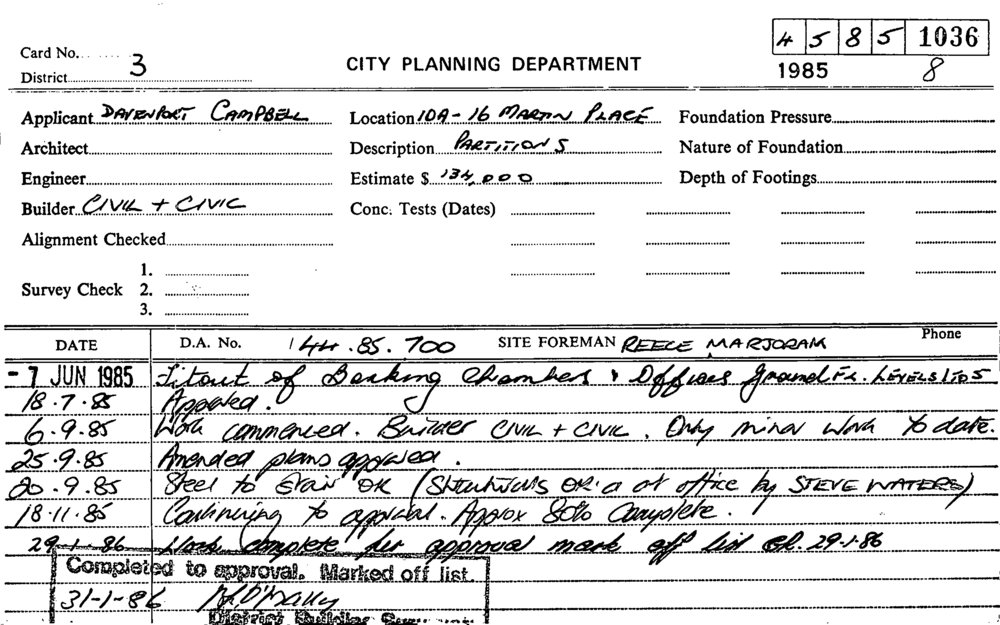 4 5 8 5 1036
Card No.
District 3
CITY PLANNING DEPARTMENT
1985 8
Applicant DAVENPORT CAMPBELL
Location 10A - 16 MARTIN PLACE
Foundation Pressure
Architect
Description PARTITIONS
Nature of Foundation
Engineer
Estimate $ 134,000
Depth of Footings
Builder CIVIL + CIVIC
Conc. Tests (Dates)
Alignment Checked
1.
Survey Check 2.
3.
DATE D.A. No. 144.85.700 SITE FOREMAN REECE MARJORAM Phone
- 7 JUN 1985 Fitout of Banking Chambers & Offices Ground FL. LEVELS 1 TO 5
18.7.85 Approved.
6.9.85 Work commenced. Builder CIVIL + CIVIC. Only minor work to date.
25.9.85 Amended plans approved.
20.9.85 Steel to stair OK ( OK'd at office by STEVE WATERS)
18.11.85 Continuing to approval. Approx 80% Complete.
29-1-86 Work complete per approval mark off list 29.1.86
Completed to approval. Marked off list.
31-1-86
District Building